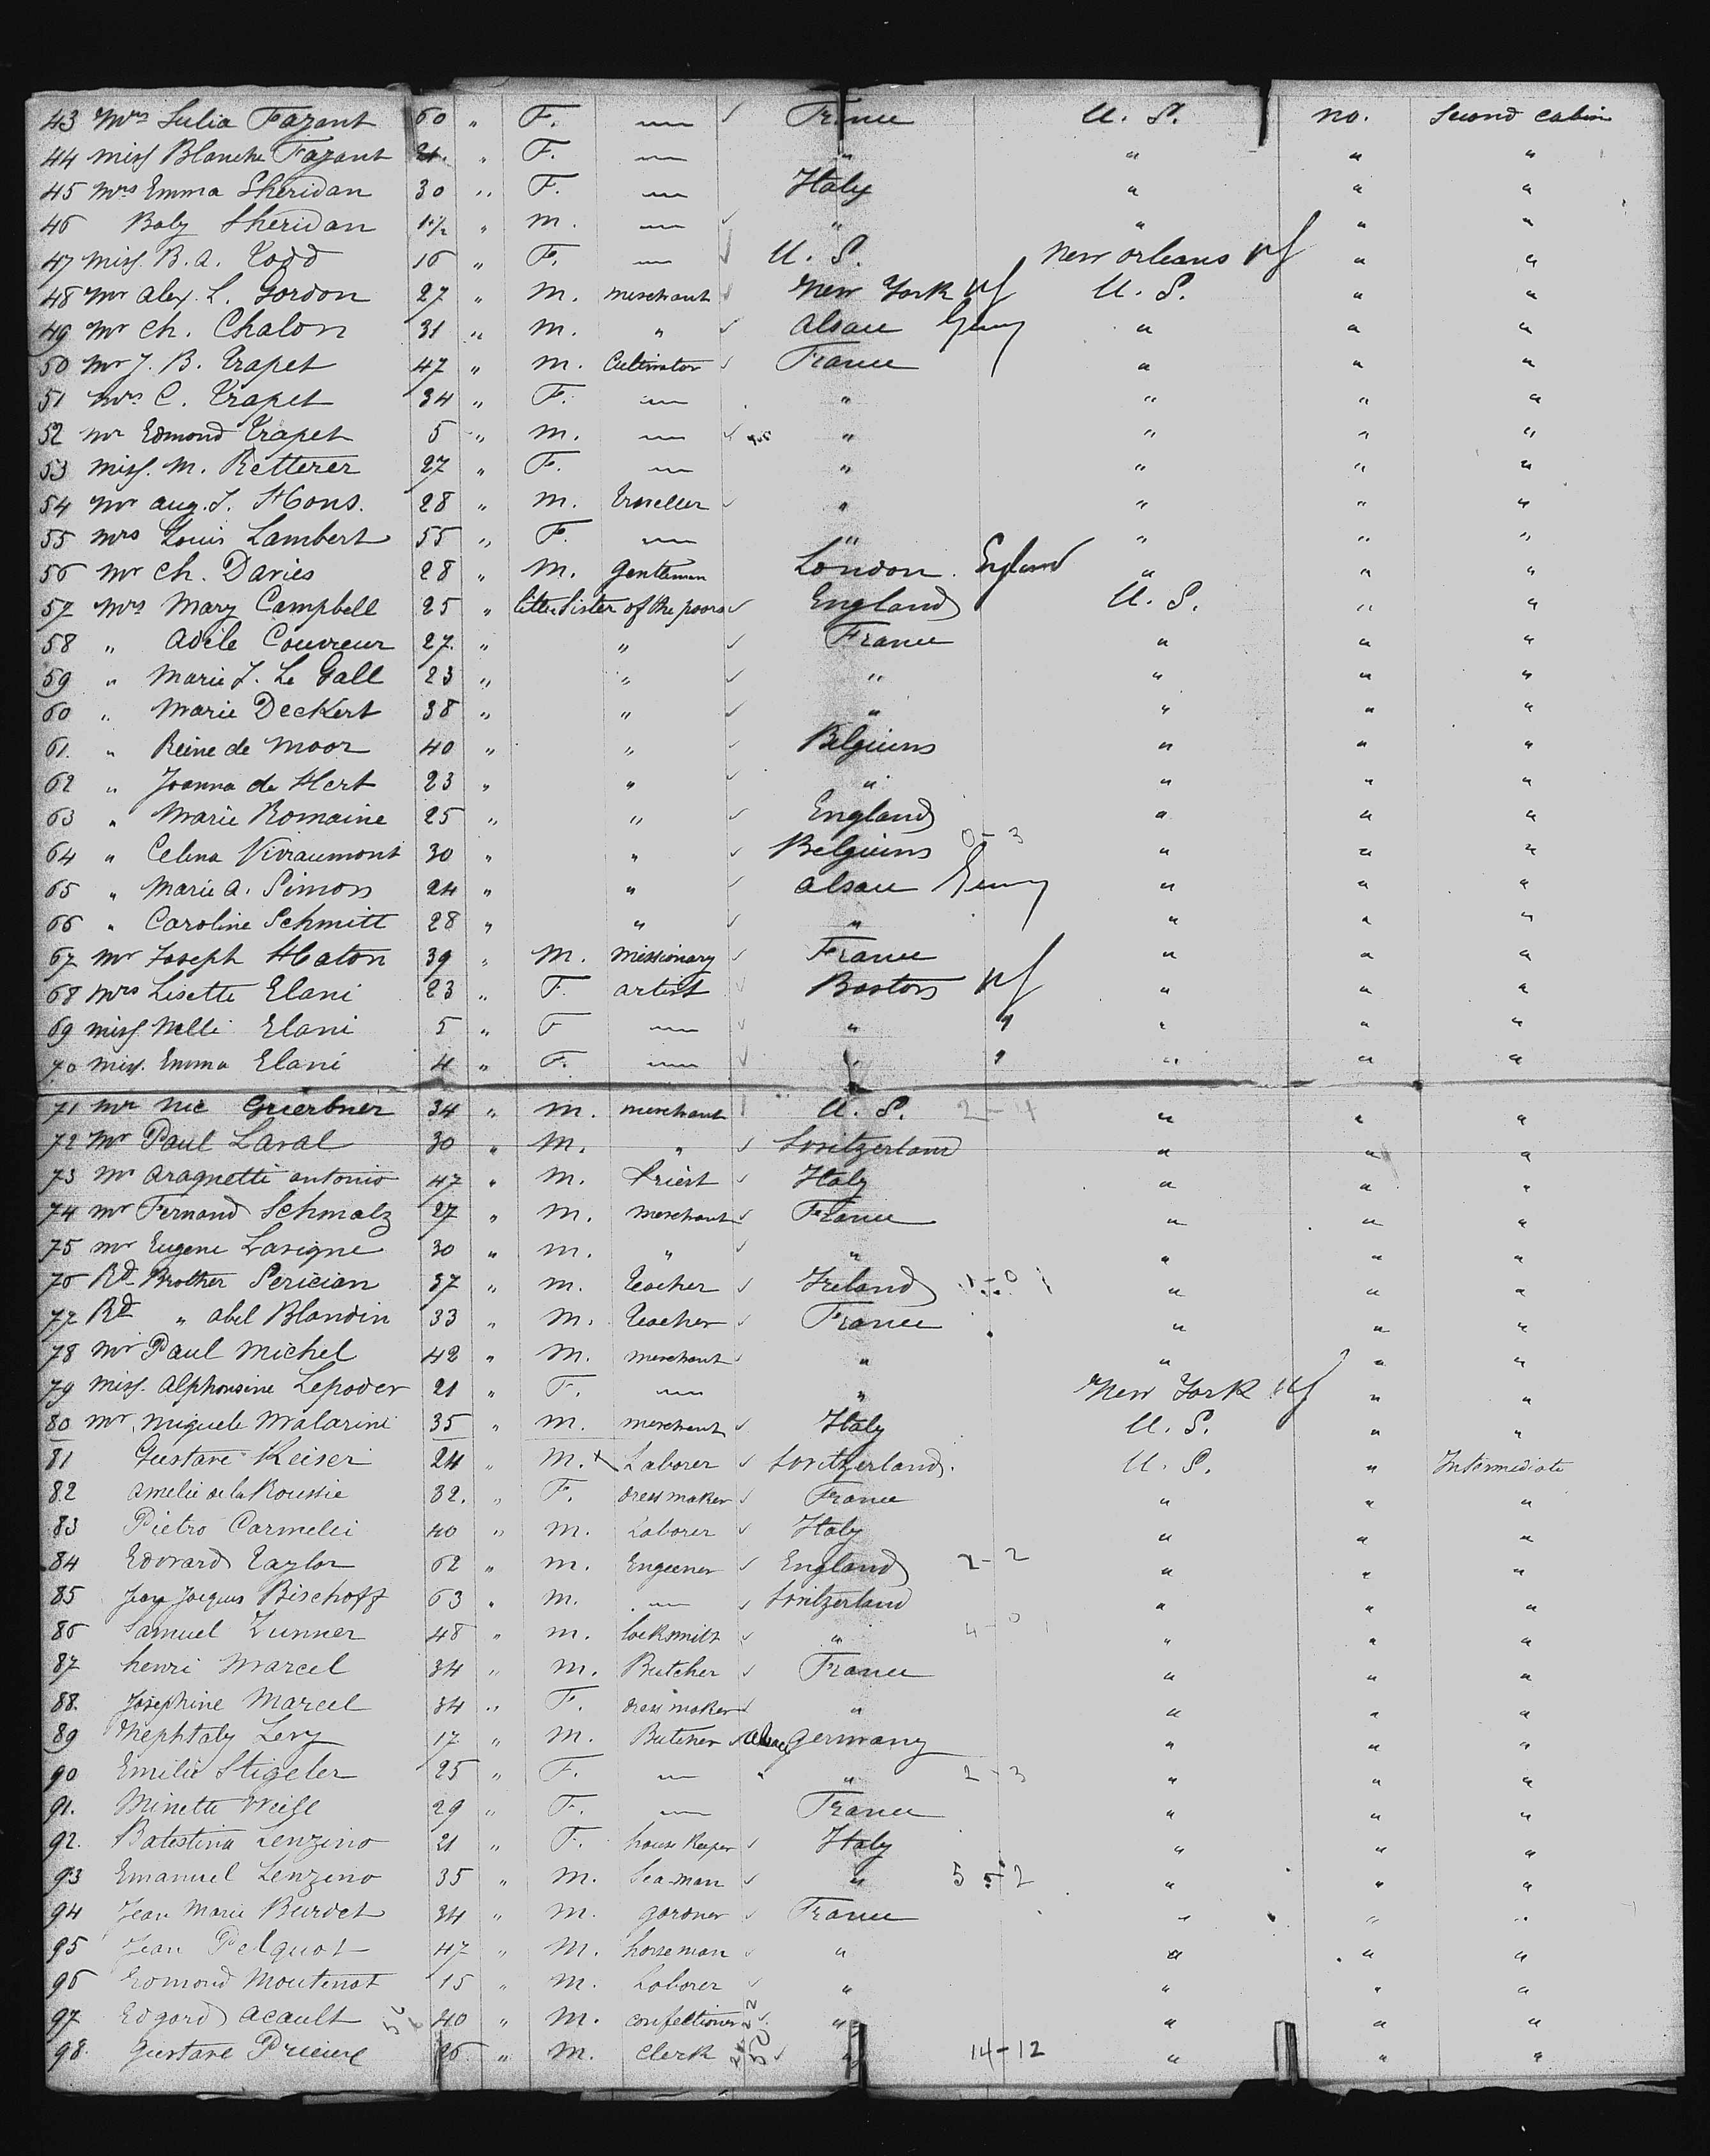 43 Mrs Julia Fazant 60 " F. — ✓ France U. S. no. Second Cabin
44 Miss Blanche Fazant 21. " F. — " " " "
45 Mrs Emma Sheridan 30 " F. — Italy " " "
46 Baby Sheridan 1 1/2 " M. — ✓ " " " "
47 Miss. B. A. Todd 16 " F. — ✓ U. S. New Orleans " "
48 Mr Alex. L. Gordon 27 " M. Merchant ✓ New York U. S. " "
49 Mr Ch. Chalon 31 " M. " ✓ Alsace Gemy " " "
50 Mr J. B. Trapet 47 " M. Cultivator ✓ France " " "
51 Mrs C. Trapet 34 " F. — " " " "
52 Mr Edmond Trapet 5 " M. — ✓ " " " "
53 Miss. M. Retterer 27 " F. — " " " "
54 Mr Aug. J. Hons. 28 " M. Traveller ✓ " " " "
55 Mrs Louis Lambert 55 " F. — " " " "
56 Mr Ch. Davies 28 " M. Gentleman London. England " " "
57 Mrs Mary Campbell 25 " Little Sister of the poors ✓ England U. S. " "
58 " Adèle Couvreur 27. " " ✓ France " " "
59 " Marie J. Le Gall 23 " " ✓ " " " "
60 " Marie Deckert 38 " " ✓ " " " "
61. " Reine de Moor 40 " " ✓ Belgium " " "
62 " Joanna de Hert 23 " " ✓ " " " "
63 " Marie Romaine 25 " " ✓ England " " "
64 " Celina Viviaumont 30 " " ✓ Belgium 0-3 " " "
65 " Marie A. Simon 24 " " ✓ Alsace Gemy " " "
66 " Caroline Schmitt 28 " " ✓ " " " "
67 Mr Joseph Haton 39 " M. Missionary ✓ France " " "
68 Mrs Lisette Elani 23 " F. artist ✓ Boston " " "
69 Miss. Nelli Elani 5 " F — ✓ " " " " "
70 Miss. Emma Elani 4 " F. — ✓ " " " " "
71 Mr Nic Guerbner 34 " M. Merchant U. S. 2-4 " " "
72 Mr Paul Laval 30 " M. " ✓ Switzerland " " "
73 Mr Aragnetti Antonio 47 " M. Priest ✓ Italy " " "
74 Mr Fernand Schmalz 27 " M. Merchant ✓ France " " "
75 Mr Eugene Lavigne 30 " M. " ✓ " " " "
76 Rd Brother Perician 37 " M. Teacher ✓ Ireland 1-0 " " "
77 Rd " Abel Blandin 33 " M. Teacher ✓ France " " "
78 Mr Paul Michel 42 " M. Merchant ✓ " " " "
79 Miss. Alphonsine Lepoder 21 " F. — " New York " "
80 Mr Miguele Malarini 35 " M. Merchant ✓ Italy U. S. " "
81 Gustave Keiser 24 " M. x Laborer ✓ Switzerland. U. S. " Intermediate
82 Amelie de la Roussie 32. " F. dress maker ✓ France " " "
83 Pietro Carmelli 40 " M. Laborer ✓ Italy " " "
84 Edward Taylor 62 " M. Engeener ✓ England 2-2 " " "
85 Jean Jacques Bischoff 63 " M. — ✓ Switzerland " " "
86 Samuel Zunner 48 " M. locksmith ✓ " 4-0 " " "
87 henri Marcel 34 " M. Butcher ✓ France " " "
88. Josephine Marcel 34 " F. dress maker ✓ " " " "
89 Nephtaly Levy 17 " M. Butcher ✓ Alsace Germany " " "
90 Emilie Stigeler 25 " F. — " 2-3 " " "
91. Minette Weill 29 " F. — France " " "
92. Batestina Lenzino 21 " F. house keeper ✓ Italy " " "
93 Emanuel Lenzino 35 " M. Sea-man ✓ " 5-2 " " "
94 Jean Marie Burdet 34 " M. gardner ✓ France " " "
95 Jean Pelquot 47 " M. horseman ✓ " " " "
96 Edmond Moutenot 15 " M. Laborer ✓ " " " "
97 Edgard Acault 40 " M. confectioner ✓ " " " "
98. Gustave 26 " M. Clerk ✓ " 14-12 " " "